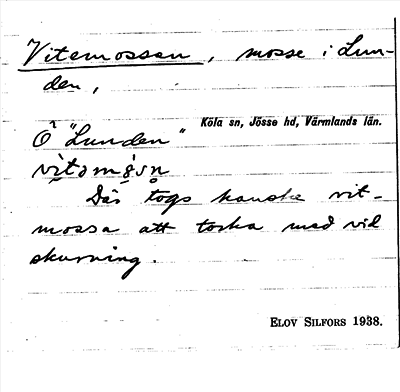 Vitemossen, mosse i Lun-
den,
Ö "Lunden"
Köla sn, Jösse hd, Värmlands län.
Där togs kanske vit-
mossa att torka med vid
skurning.
ELOV SILFORS 1938.